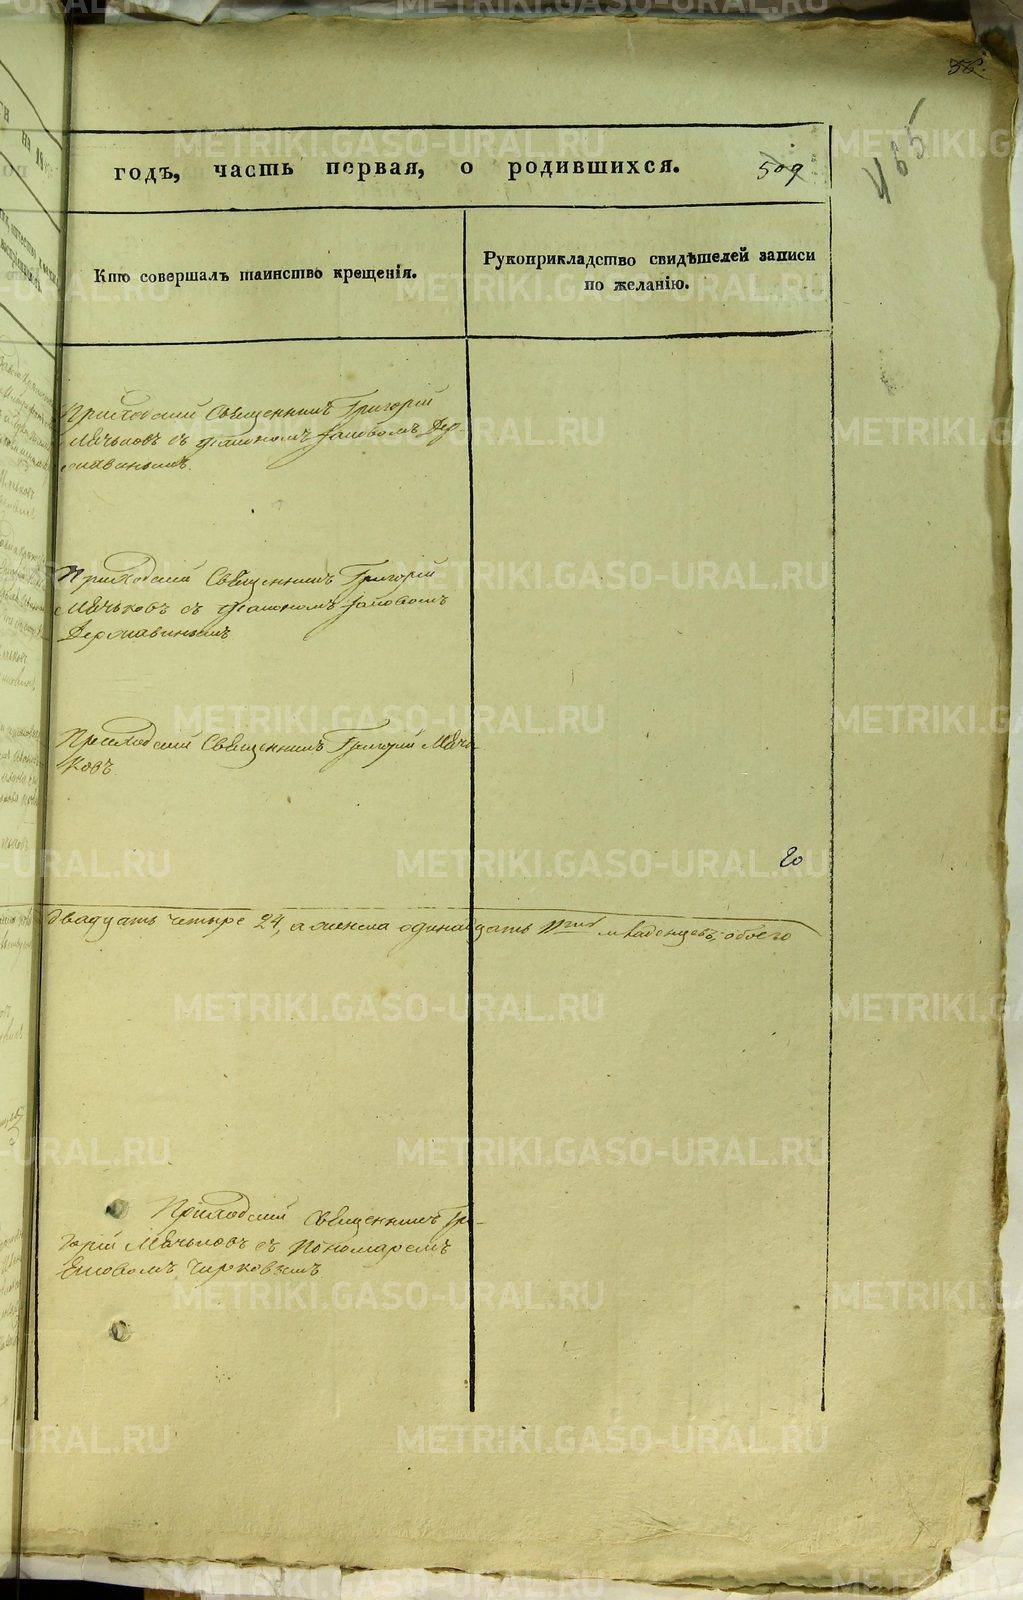 465
годъ, часть первая, о родившихся. 509
Кто совершалъ таинство крещенія.
Рукоприкладство свидѣтелей записи
по желанію.
Приходский Священникъ Григорій
Мячьковъ съ Диакономъ Иаковомъ Дер-
жавинымъ.
Приходский Священникъ Григорій
Мячьковъ съ Диакономъ Иаковомъ
Державинымъ
Приходский Священникъ Григорій Мячь-
ковъ.
20
двадцать четыре 24, а женска одинадцать младенцевъ, обоего
Приходский Священникъ Гри-
горій Мячьковъ съ Пономаремъ
Чирковымъ
METRIKI.GASO-URAL.RU